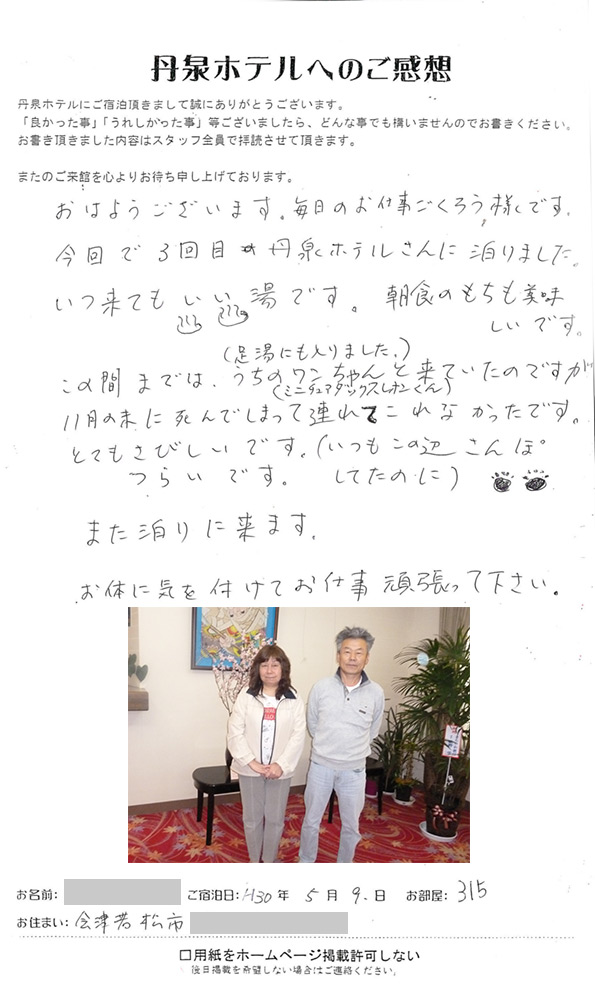 丹泉ホテルへのご感想
丹泉ホテルにご宿泊頂きまして誠にありがとうございます。
「良かった事」「うれしかった事」等ございましたら、どんな事でも構いませんのでお書きください。
お書き頂きました内容はスタッフ全員で拝読させて頂きます。
またのご来館を心よりお待ち申し上げております。
おはようございます。毎日のお仕事ごくろう様です。
今回で3回目の丹泉ホテルさんに泊りました。
いつ来てもいい湯です。朝食のもちも美味
しいです。
(足湯にも入りました。)
この間までは、うちのワンちゃんと来ていたのですが
(ミニチュアダックスレオンくん)
11月の末に死んでしまって連れてこれなかったです。
とてもさびしいです。(いつもこの辺さんぽ
つらいです。 してたのに)
また泊りに来ます。
お体に気を付けてお仕事頑張って下さい。
お名前: ご宿泊日: H30年 5月 9日 お部屋: 315
お住まい: 会津若松市
□用紙をホームページ掲載許可しない
後日掲載を希望しない場合はご連絡ください。